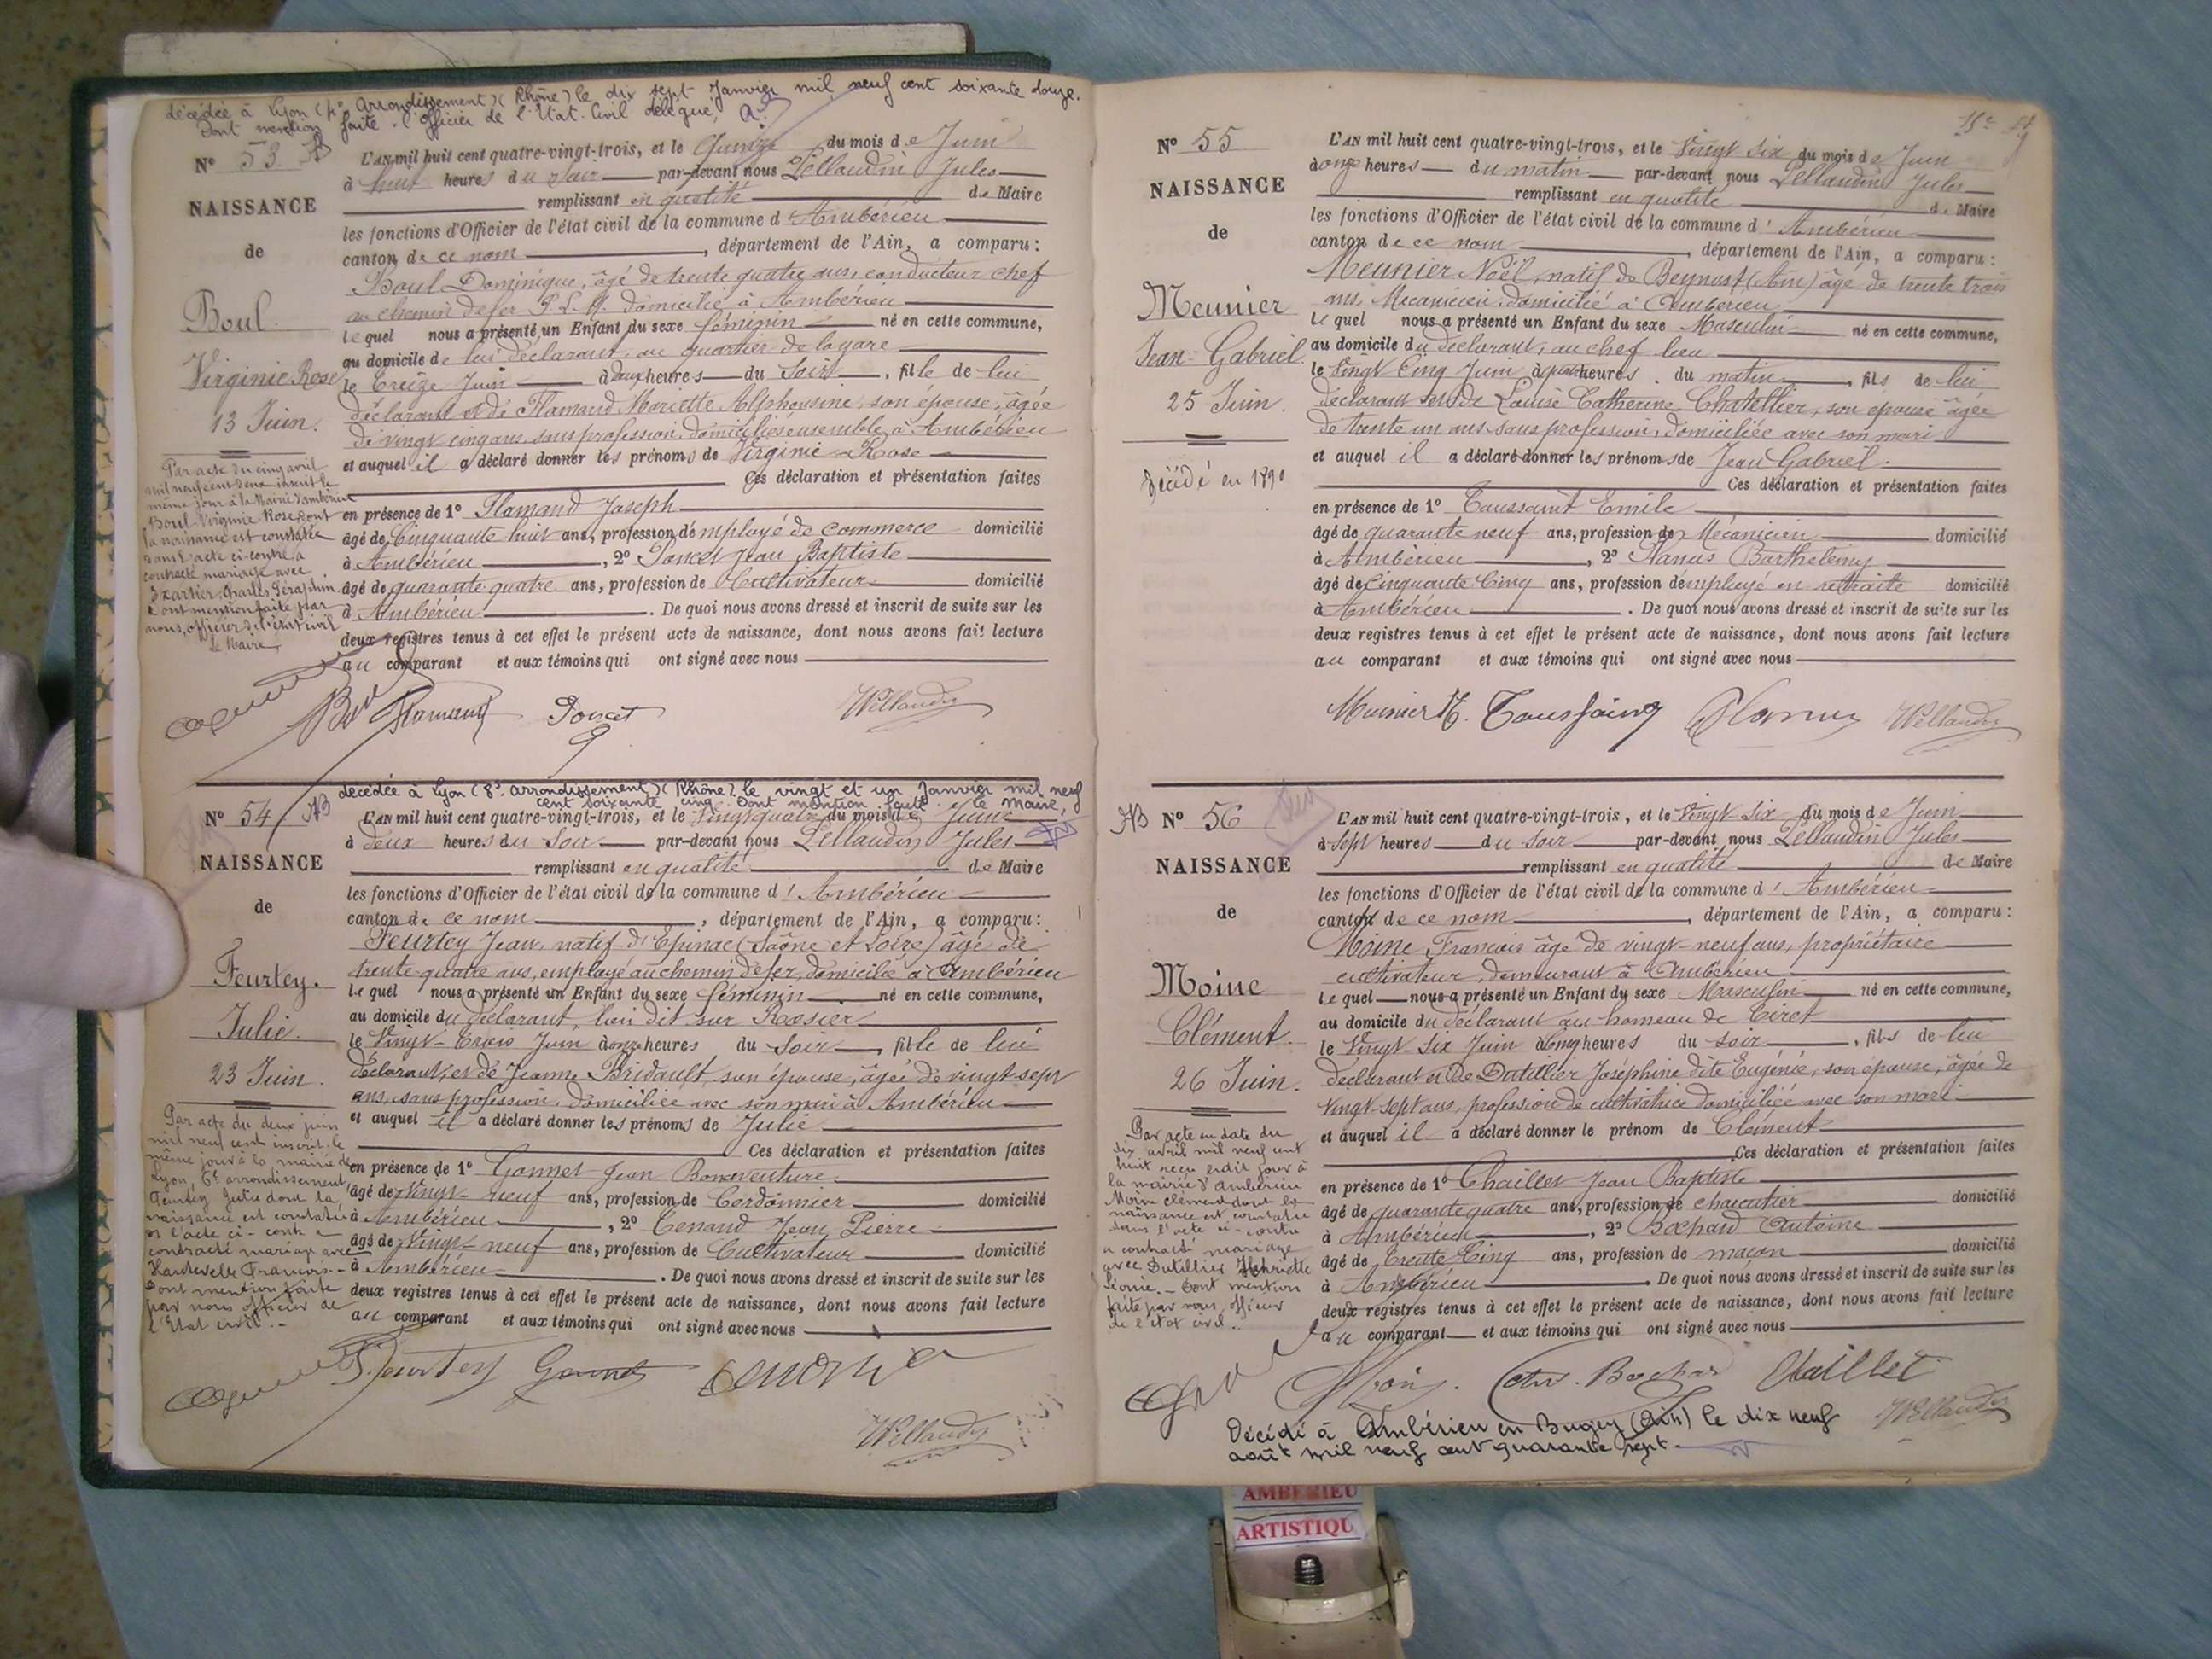 décédée à Lyon (4e arrondissement) (Rhône) le dix sept Janvier mil neuf cent soixante douze.
Dont mention faite. l'officier de l'Etat-Civil délégué,
N° 53
NAISSANCE
de
Boul
Virginie Rose
13 Juin.
L'AN mil huit cent quatre-vingt-trois, et le Quinze du mois de Juin
à huit heures du soir par-devant nous Pellaudin Jules
remplissant en qualité de Maire
les fonctions d'Officier de l'état civil de la commune d'Ambérieu
canton de ce nom, département de l'Ain, a comparu :
Boul Dominique, âgé de trente quatre ans, conducteur chef
au chemin de fer P.L.M. domicilié à Ambérieu
le quel nous a présenté un Enfant du sexe féminin né en cette commune,
au domicile de lui déclarant, au quartier de la gare
le Treize Juin à deux heures du Soir, fille de lui
déclarant et de Flamand Mariette Alphonsine, son épouse, âgée
de vingt cinq ans, sans profession, domiciliés ensemble à Ambérieu
et auquel il a déclaré donner les prénoms de Virginie-Rose
Ces déclaration et présentation faites
en présence de 1° Flamand Joseph
âgé de Cinquante huit ans, profession d'employé de commerce domicilié
à Ambérieu, 2° Poncet Jean Baptiste
âgé de quarante-quatre ans, profession de Cultivateur domicilié
à Ambérieu. De quoi nous avons dressé et inscrit de suite sur les
deux registres tenus à cet effet le présent acte de naissance, dont nous avons fait lecture
au comparant et aux témoins qui ont signé avec nous
Par acte du cinq avril
mil neuf cent deux inscrit le
même jour à la Mairie d'Ambérieu
Boul Virginie Rose dont
la naissance est constatée
dans l'acte ci-contre a
contracté mariage avec
Charles Séraphin
dont mention faite par
nous, officier de l'état civil
Le Maire,
Boul Flamand Poncet Pellaudin
décédée à Lyon (8e arrondissement) (Rhône) le vingt et un Janvier mil neuf
cent soixante cinq. Dont mention faite. le Maire,
N° 54
NAISSANCE
de
Feurtey.
Julie.
23 Juin.
L'AN mil huit cent quatre-vingt-trois, et le Vingt quatre du mois de Juin
à deux heures du Soir par-devant nous Pellaudin Jules
remplissant en qualité de Maire
les fonctions d'Officier de l'état civil de la commune d'Ambérieu
canton de ce nom, département de l'Ain, a comparu :
Feurtey Jean, natif d'Epinac (Saône et Loire) âgé de
trente-quatre ans, employé au chemin de fer, domicilié à Ambérieu
le quel nous a présenté un Enfant du sexe féminin né en cette commune,
au domicile du déclarant, lieu dit sur Rosier
le Vingt-Trois Juin à onze heures du Soir, fille de lui
déclarant, et de Jeanne Bridault, son épouse, âgée de vingt-sept
ans, sans profession, domiciliée avec son mari à Ambérieu
et auquel il a déclaré donner les prénoms de Julie
Ces déclaration et présentation faites
en présence de 1° Gonnet Jean Bonaventure
âgé de Vingt-neuf ans, profession de Cordonnier domicilié
à Ambérieu, 2° Tenand Jean Pierre
âgé de Vingt-neuf ans, profession de Cultivateur domicilié
à Ambérieu. De quoi nous avons dressé et inscrit de suite sur les
deux registres tenus à cet effet le présent acte de naissance, dont nous avons fait lecture
au comparant et aux témoins qui ont signé avec nous
Par acte du deux juin
mil neuf cent inscrit le
même jour à la mairie de
Lyon, 6e arrondissement,
Feurtey Julie dont la
naissance est constatée
en l'acte ci-contre a
contracté mariage avec
Hauteville François.-
Dont mention faite
par nous officier de
l'Etat civil.-
Feurtey Gonnet Tenand
Pellaudin
N° 55
NAISSANCE
de
Meunier
Jean-Gabriel.
25 Juin.
Décédé en 1890
L'AN mil huit cent quatre-vingt-trois, et le Vingt Six du mois de Juin
à onze heures du matin par-devant nous Pellaudin Jules
remplissant en qualité de Maire
les fonctions d'Officier de l'état civil de la commune d'Ambérieu
canton de ce nom, département de l'Ain, a comparu :
Meunier Noël, natif de Beynost (Ain) âgé de trente trois
ans, Mécanicien, domicilié à Ambérieu
le quel nous a présenté un Enfant du sexe Masculin né en cette commune,
au domicile du déclarant, au chef lieu
le Vingt Cinq Juin à quatre heures du matin, fils de lui
déclarant et de Louise Catherine Chatellier, son épouse âgée
de trente un ans sans profession, domiciliée avec son mari
et auquel il a déclaré donner les prénoms de Jean Gabriel.
Ces déclaration et présentation faites
en présence de 1° Toussaint Emile
âgé de quarante neuf ans, profession de Mécanicien domicilié
à Ambérieu, 2° Planus Barthélemy
âgé de Cinquante Cinq ans, profession d'employé en retraite domicilié
à Ambérieu. De quoi nous avons dressé et inscrit de suite sur les
deux registres tenus à cet effet le présent acte de naissance, dont nous avons fait lecture
au comparant et aux témoins qui ont signé avec nous
Meunier N. Toussaint Planus Pellaudin
N° 56
NAISSANCE
de
Moine
Clément.
26 Juin.
L'AN mil huit cent quatre-vingt-trois, et le Vingt Six du mois de Juin
à sept heures du soir par-devant nous Pellaudin Jules
remplissant en qualité de Maire
les fonctions d'Officier de l'état civil de la commune d'Ambérieu
canton de ce nom, département de l'Ain, a comparu :
Moine François âgé de vingt-neuf ans, propriétaire
cultivateur, demeurant à Ambérieu
le quel nous a présenté un Enfant du sexe Masculin né en cette commune,
au domicile du déclarant au hameau de Tiret
le Vingt-Six Juin à cinq heures du soir, fils de lui
déclarant et de Dutillier Joséphine dite Eugénie, son épouse, âgée de
vingt-sept ans, profession de cultivatrice domiciliée avec son mari
et auquel il a déclaré donner le prénom de Clément
Ces déclaration et présentation faites
en présence de 1° Chaillet Jean Baptiste
âgé de quarante quatre ans, profession de charcutier domicilié
à Ambérieu, 2° Bochard Antoine
âgé de Trente Cinq ans, profession de maçon domicilié
à Ambérieu. De quoi nous avons dressé et inscrit de suite sur les
deux registres tenus à cet effet le présent acte de naissance, dont nous avons fait lecture
au comparant et aux témoins qui ont signé avec nous
Par acte en date du
dix avril mil neuf cent
huit reçu ledit jour à
la mairie d'Ambérieu
Moine Clément dont la
naissance est constatée
dans l'acte ci-contre
a contracté mariage
avec Dutillier Henriette
Léonie.- Dont mention
faite par nous, officier
de l'état civil..
Moine Bochard Chaillet
Pellaudin
Décédé à Ambérieu en Bugey (Ain) le dix neuf
août mil neuf cent quarante sept.-
AMBERIEU
ARTISTIQU